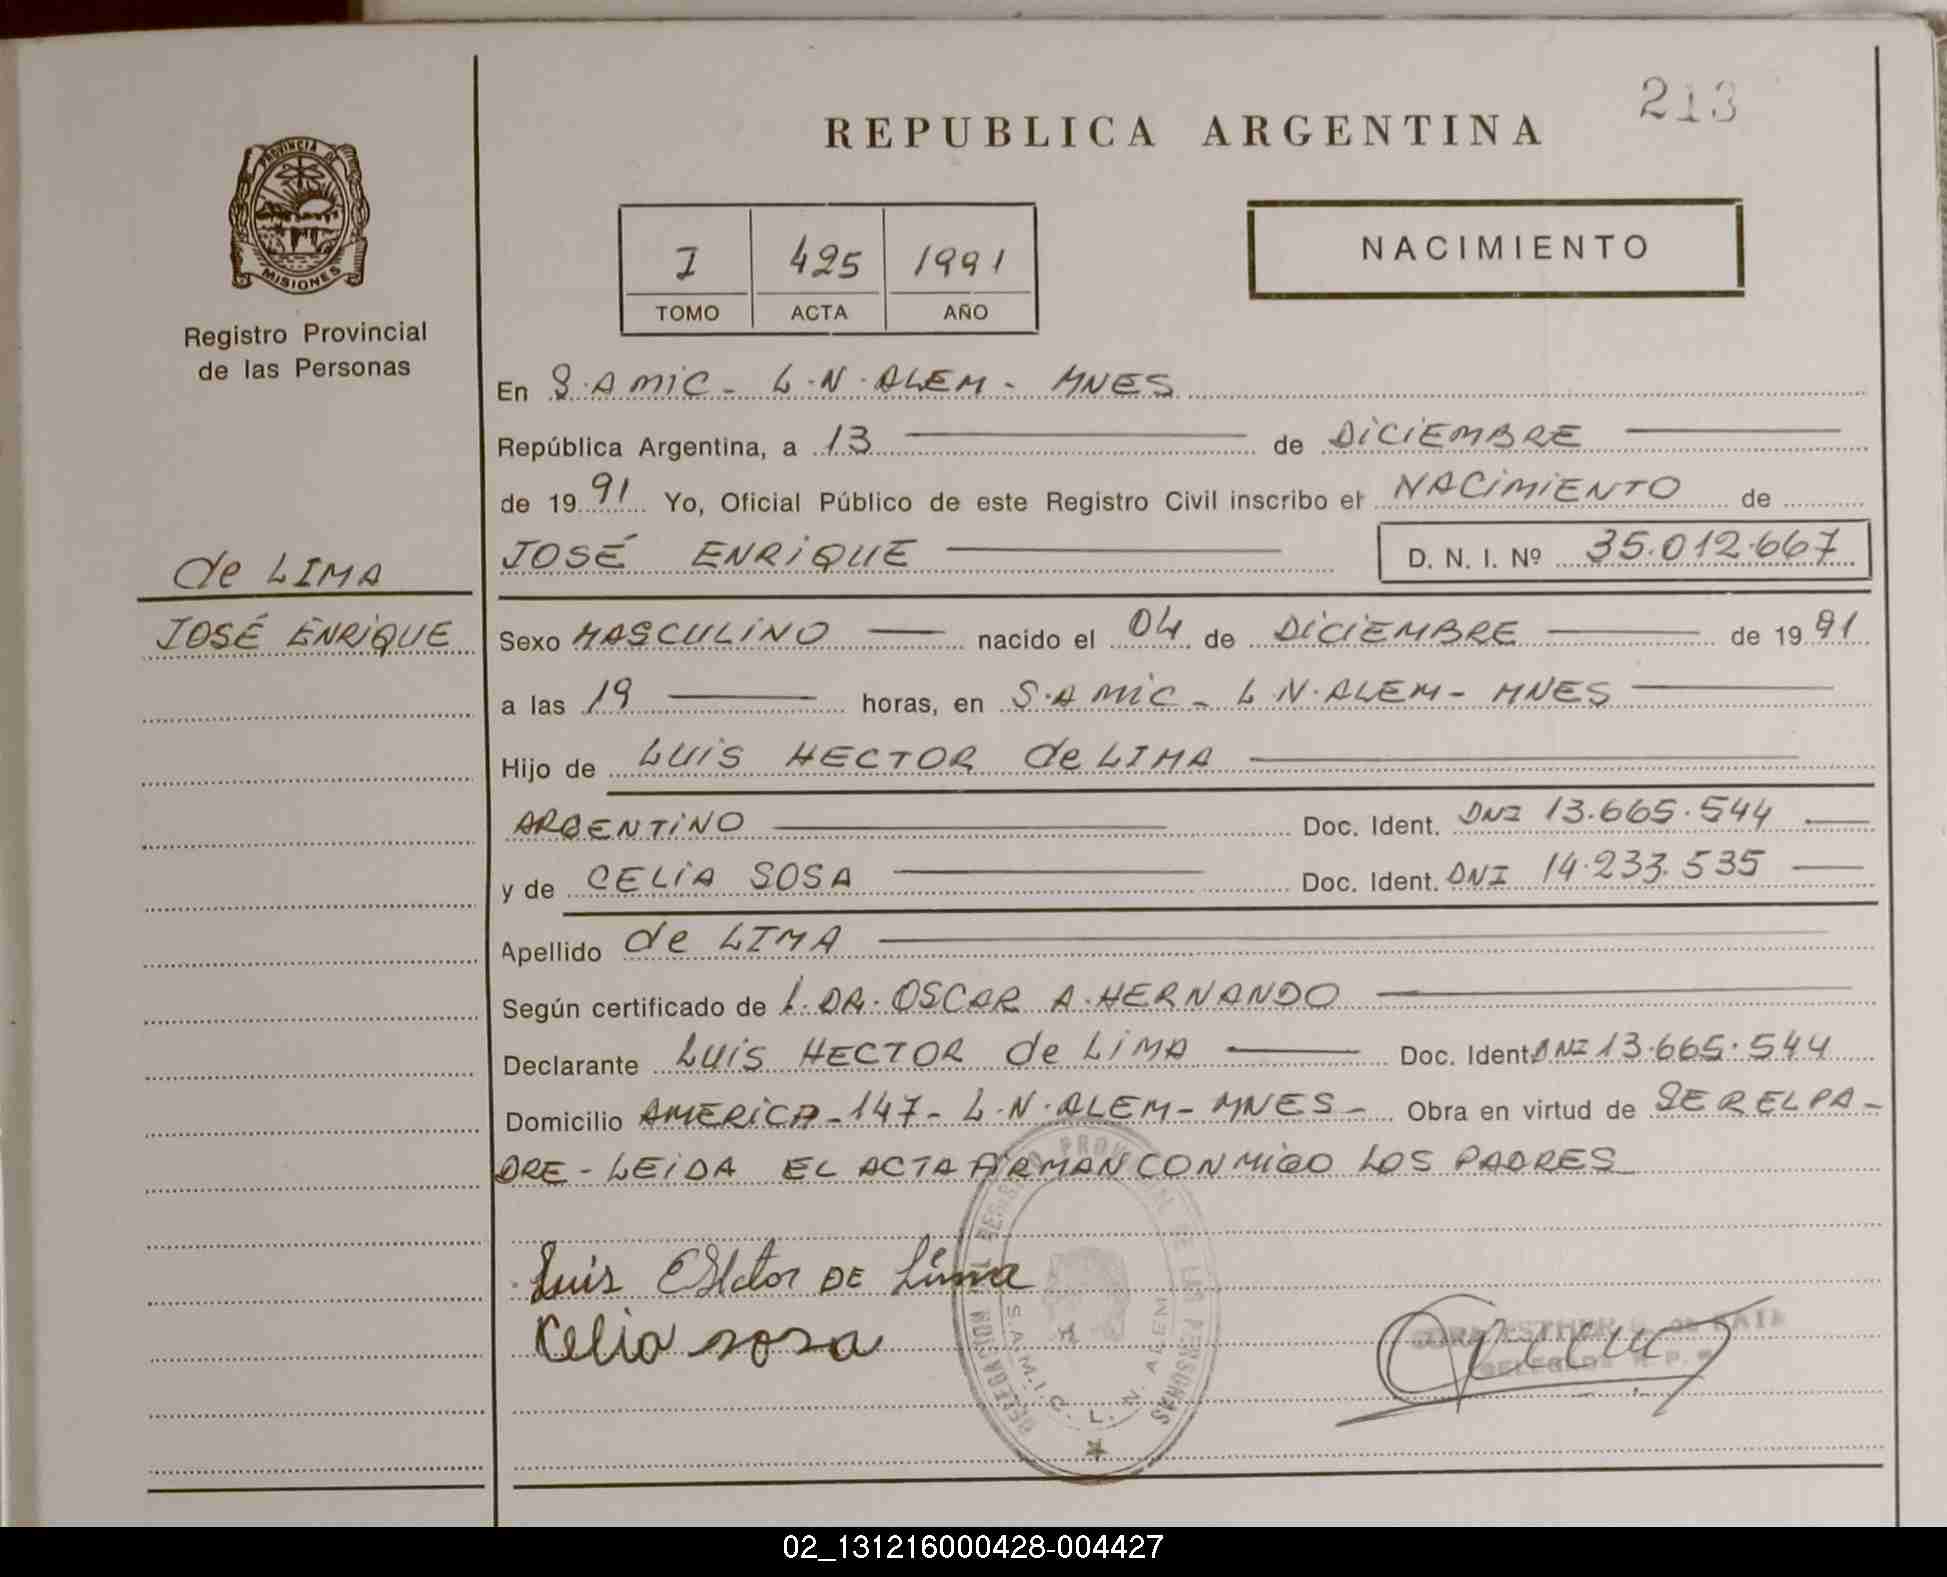 213
REPUBLICA ARGENTINA
PROVINCIA DE
MISIONES
Registro Provincial
de las Personas
NACIMIENTO
I 425 1991
TOMO ACTA AÑO
En S.A MIC - L.N.ALEM - MNES
República Argentina, a 13 de DICIEMBRE
de 1991 Yo, Oficial Público de este Registro Civil inscribo el NACIMIENTO de
JOSÉ ENRIQUE D. N. I. Nº 35.012.667
de LIMA
JOSÉ ENRIQUE
Sexo MASCULINO nacido el 04 de DICIEMBRE de 1991
a las 19 horas, en S.A MIC - L.N.ALEM - MNES
Hijo de LUIS HECTOR de LIMA
ARGENTINO Doc. Ident. DNI 13.665.544
y de CELIA SOSA Doc. Ident. DNI 14.233.535
Apellido de LIMA
Según certificado de DR. OSCAR A. HERNANDO
Declarante LUIS HECTOR de LIMA Doc. Ident. DNI 13.665.544
Domicilio AMERICA - 147 - L.N.ALEM - MNES - Obra en virtud de SER EL PA-
DRE - LEIDA EL ACTA FIRMAN CONMIGO LOS PADRES
Luis Hector DE Lima
Celia sosa
DELEGACION DEL REGISTRO PROVINCIAL DE LAS PERSONAS
S.A.M.I.C. L. N. ALEM
ESTHER
02_131216000428-004427